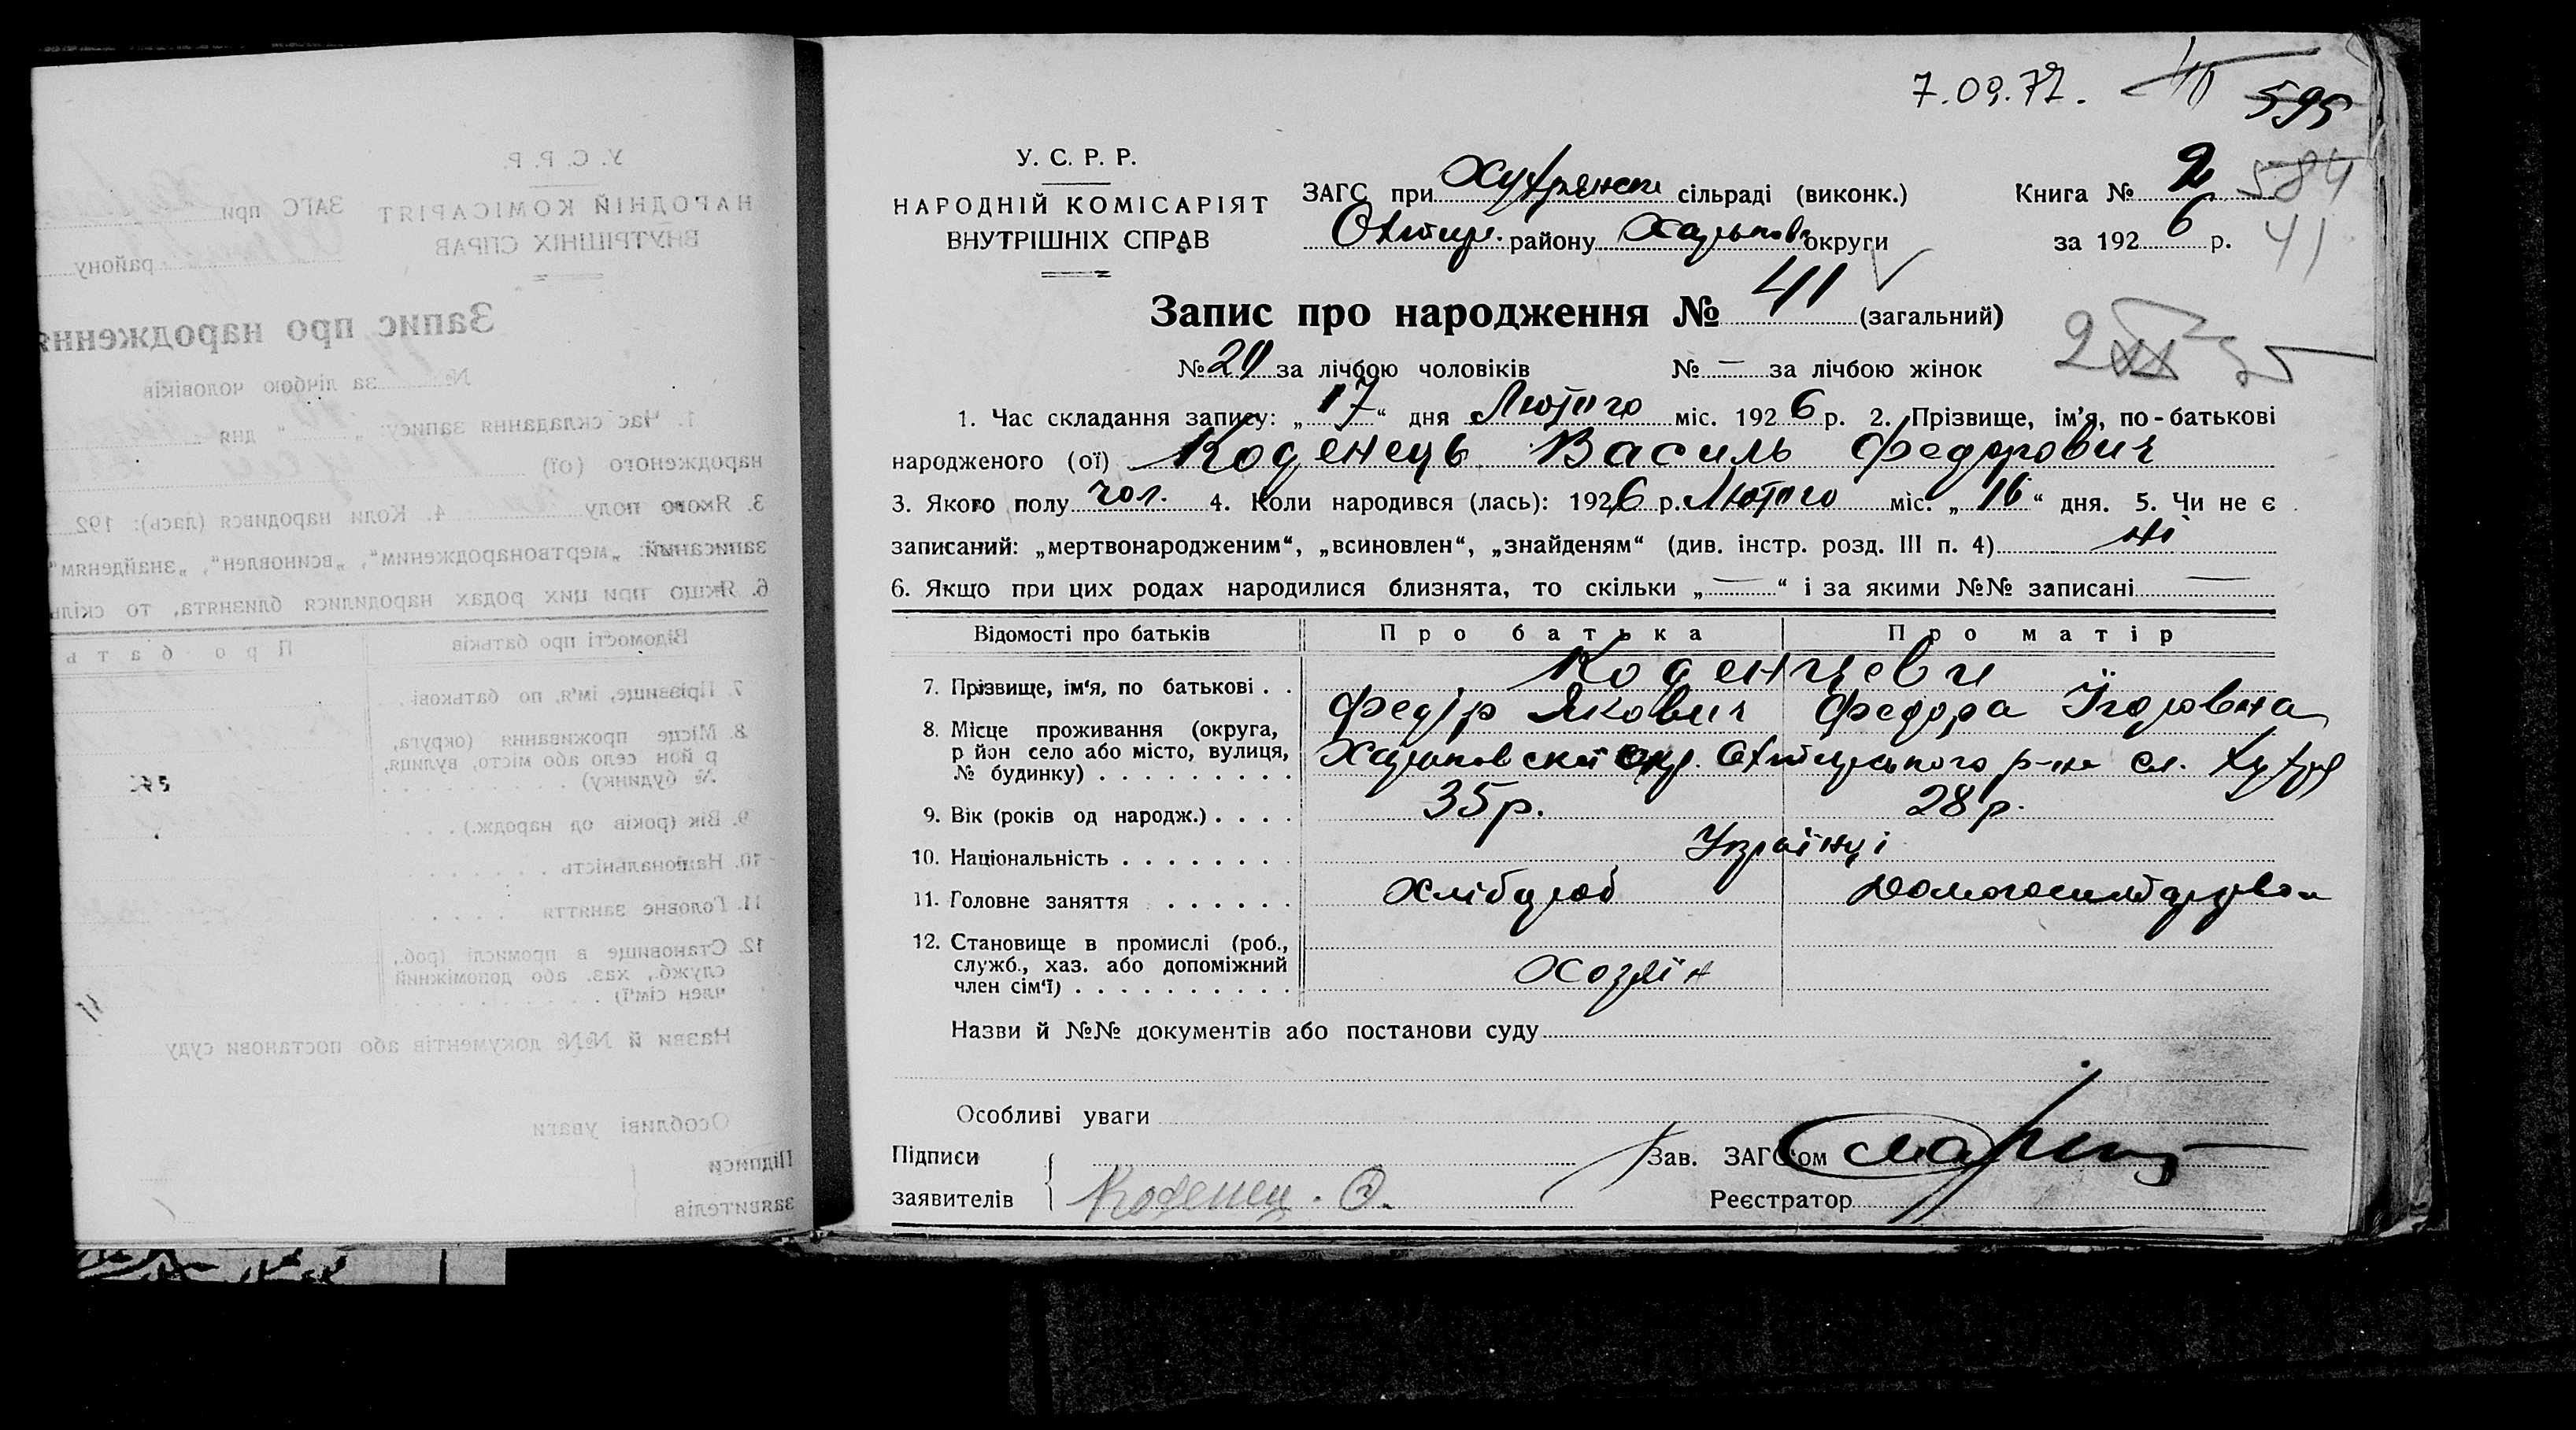 7.09.77.
595
У. С. Р. Р.
НАРОДНІЙ КОМІСАРІЯТ
ВНУТРІШНІХ СПРАВ
ЗАГС при Хухрянськ сільраді (виконк.)
Охтир. району Харьков округи
Книга № 2 584
за 1926 р. 41
Запис про народження № 41 (загальний)
№ 20 за лічбою чоловіків № — за лічбою жінок
1. Час складання запису: „17“ дня Лютого міс. 1926 р. 2. Прізвище, ім’я, по-батькові
народженого (ої) Коденець Василь Федорович
3. Якого полу чол. 4. Коли народився (лась): 1926 р. Лютого міс. „16“ дня. 5. Чи не є
записаний: „мертвонародженим“, „всиновлен“, „знайденям“ (див. інстр. розд. III п. 4) ні
6. Якщо при цих родах народилися близнята, то скільки „—“ і за якими №№ записані —
Відомості про батьків Про батька Про матір
7. Прізвище, ім‘я, по батькові . . Коденцеви
Федір Якович Федора Ігоровна
8. Місце проживання (округа,
р йон село або місто, вулиця,
№ будинку) . . . . . . . . . Харьковської окр. Охтирського р-на сл. Хухря
9. Вік (років од народж.) . . . . 35 р. 28 р.
10. Національність . . . . . . . . Українці
11. Головне заняття . . . . . . Хлібороб
12. Становище в промислі (роб.,
служб., хаз. або допоміжний
член сім‘ї) . . . . . . . . . . Хозяїн
Назви й №№ документів або постанови суду
Особливі уваги
Підписи
заявителів Коденец. Ф.
Зав. ЗАГС‘ом
Реєстратор
У. С. Р. Р.
НАРОДНІЙ КОМІСАРІЯТ
ВНУТРІШНІХ СПРАВ
ЗАГС при
району
Запис про народження
№ за лічбою чоловіків
1. Час складання запису: „ “ дня
народженого (ої)
3. Якого полу 4. Коли народився (лась): 192
записаний: „мертвонародженим“, „всиновлен“, „знайденям“
6. Якщо при цих родах народилися близнята, то скіль
Відомості про батьків Про бать
7. Прізвище, ім‘я, по батькові .
8. Місце проживання (округа,
р йон село або місто, вулиця,
№ будинку) . . . . . . . . .
9. Вік (років од народж.) . . .
10. Національність . . . . . . .
11. Головне заняття . . . . .
12. Становище в промислі (роб.,
служб., хаз. або допоміжний
член сім‘ї) . . . . . . . . . .
Назви й №№ документів або постанови суду
Особливі уваги
Підписи
заявителів